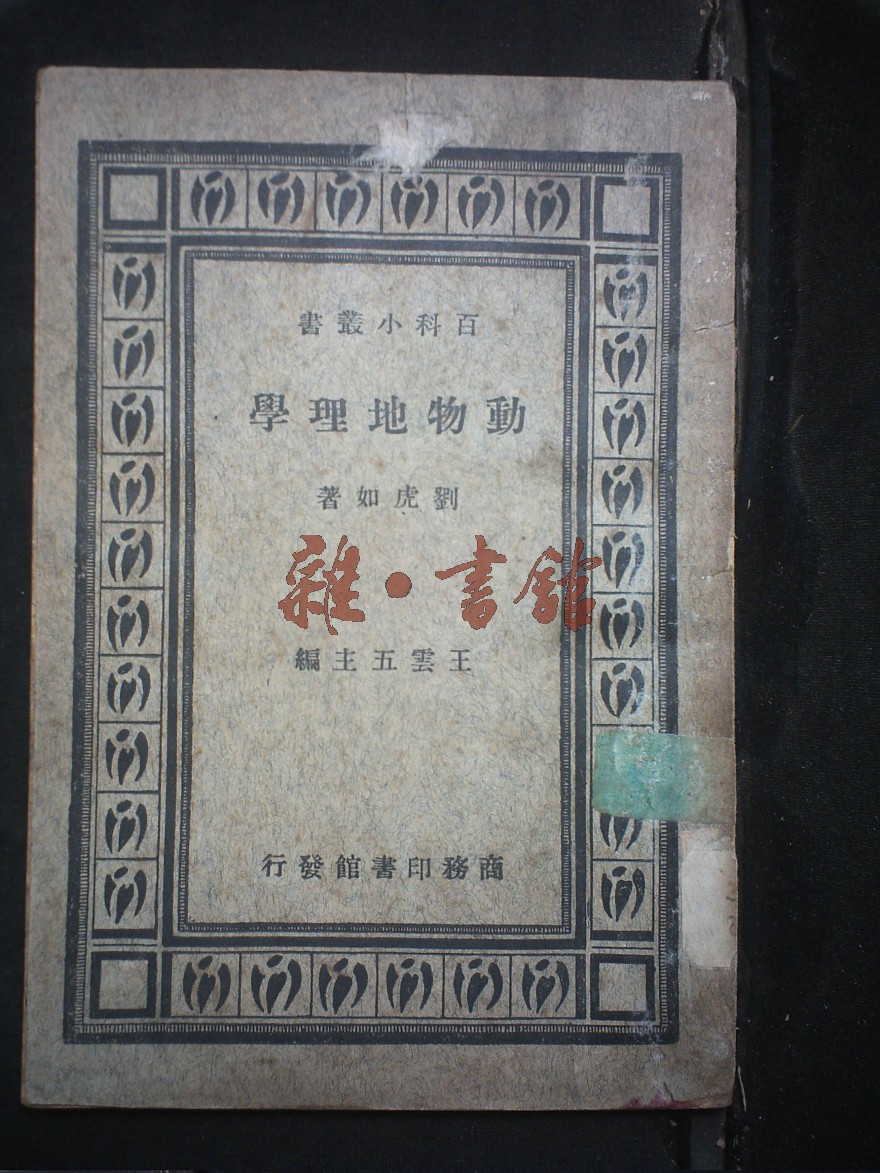 百科小叢書
動物地理學
劉虎如著
雜·書館
王雲五主編
商務印書館發行